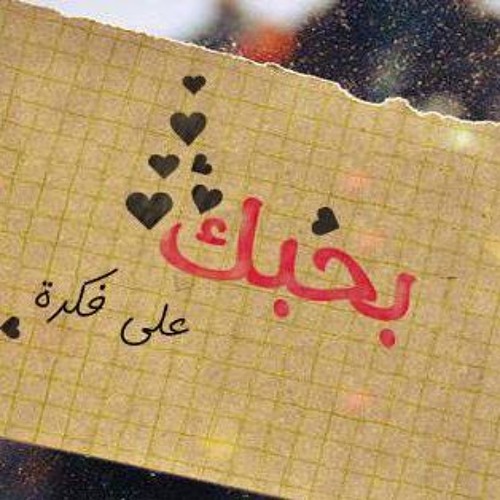 بحبك
على فكرة